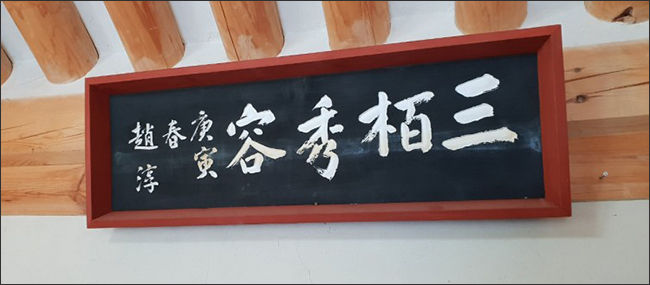 三栢秀容
庚寅
春
趙淳